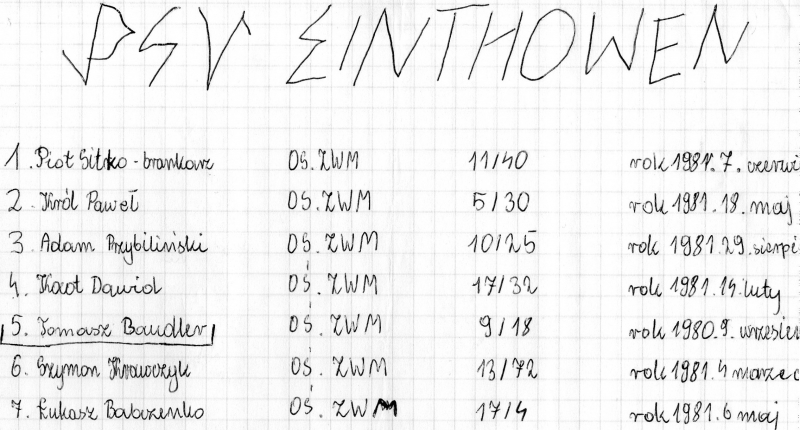 PSV EINTHOWEN
1. Piotr Sitko - bramkarz OŚ. ZWM 11/40 rok 1981. 7. czerwi
2. Król Paweł OŚ. ZWM 5/30 rok 1981. 18. maj
3. Adam Przybiliński OŚ. ZWM 10/25 rok 1981. 29. sierpi
4. Kaot Dawid OŚ. ZWM 17/32 rok 1981. 14. luty
5. Tomasz Baudler OŚ. ZWM 9/18 rok 1980. 9. wrzesień
6. Szymon Krawczyk OŚ. ZWM 13/72 rok 1981. 4 marzec
7. Łukasz Babczenko OŚ. ZWM 17/4 rok 1981. 6 maj